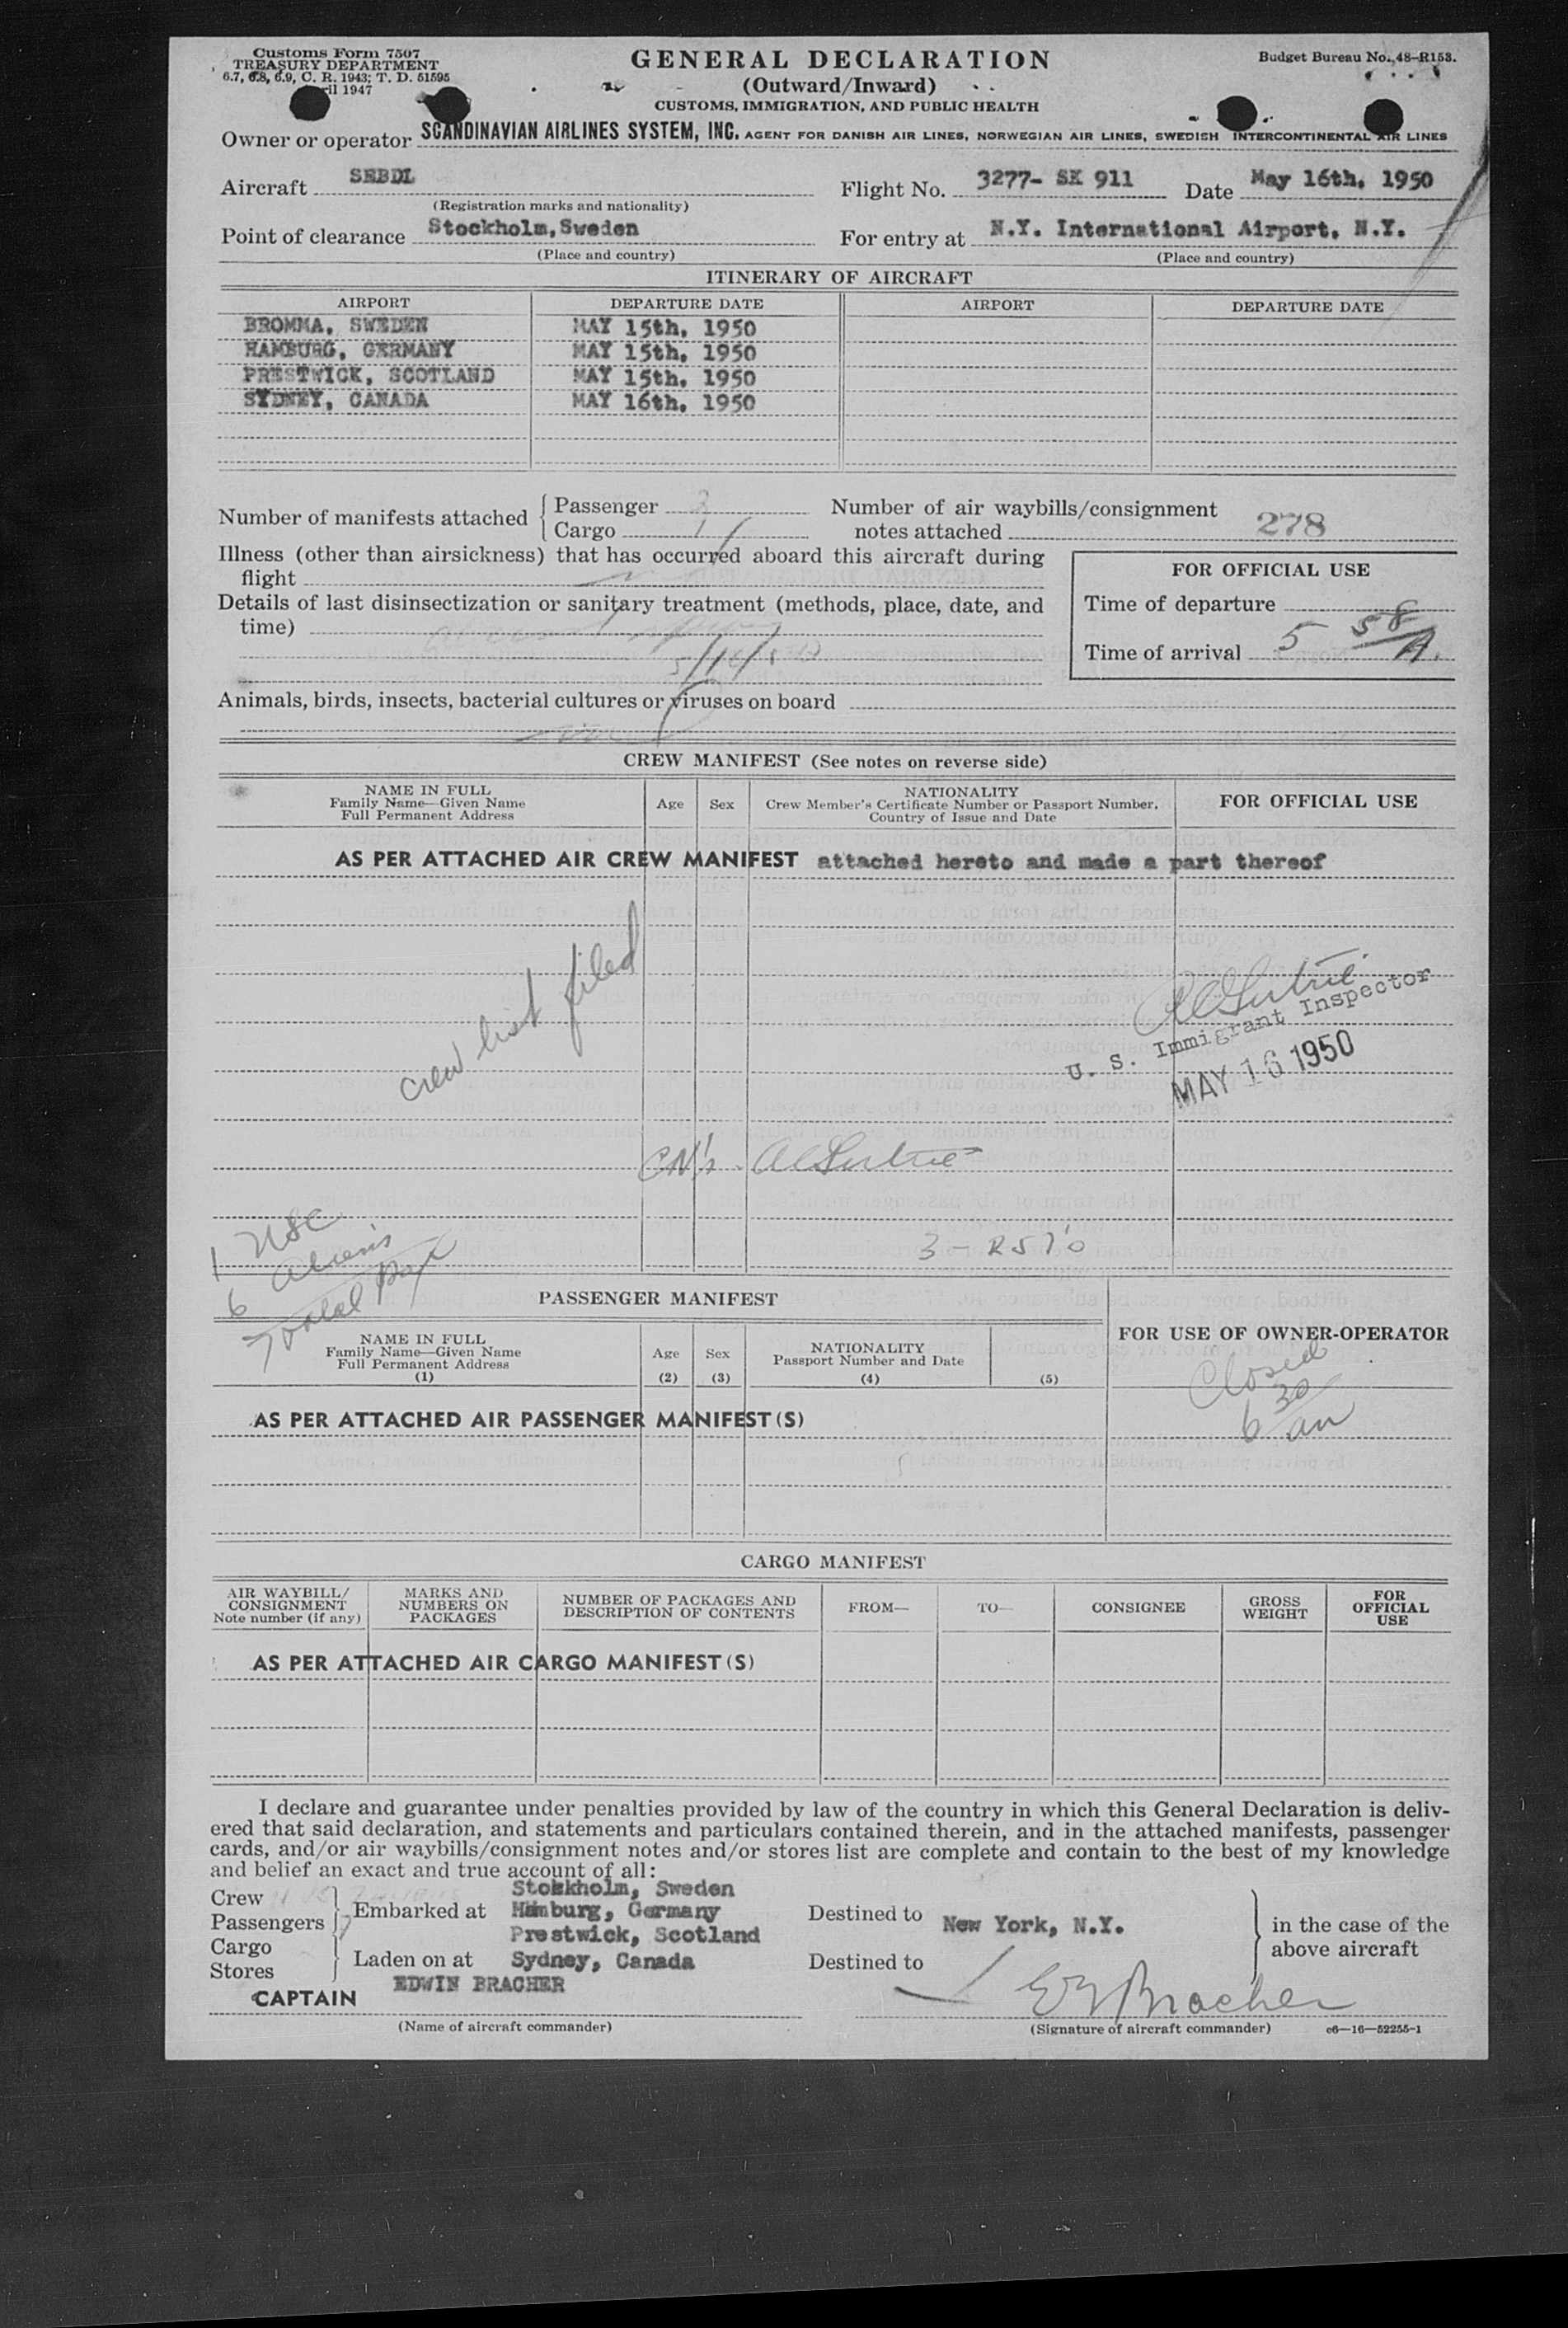 Customs Form 7507
TREASURY DEPARTMENT
6.7, 6.8, 6.9, C. R. 1943; T. D. 51595
1947
GENERAL DECLARATION
(Outward/Inward)
CUSTOMS, IMMIGRATION, AND PUBLIC HEALTH
Budget Bureau No. 48–R153.
Owner or operator SCANDINAVIAN AIRLINES SYSTEM, INC. AGENT FOR DANISH AIR LINES, NORWEGIAN AIR LINES, SWEDISH INTERCONTINENTAL AIR LINES
Aircraft SEBDL Flight No. 3277- SK 911 Date May 16th, 1950
(Registration marks and nationality)
Point of clearance Stockholm,Sweden For entry at N.Y. International Airport, N.Y.
(Place and country) (Place and country)
ITINERARY OF AIRCRAFT
AIRPORT DEPARTURE DATE AIRPORT DEPARTURE DATE
BROMMA, SWEDEN MAY 15th, 1950
HAMBURG, GERMANY MAY 15th, 1950
PRESTWICK, SCOTLAND MAY 15th, 1950
SYDNEY, CANADA MAY 16th, 1950
Number of manifests attached { Passenger
Cargo 1
Number of air waybills/consignment
notes attached 278
Illness (other than airsickness) that has occurred aboard this aircraft during
flight
Details of last disinsectization or sanitary treatment (methods, place, date, and
time)
FOR OFFICIAL USE
Time of departure
Time of arrival 5 58 A.
Animals, birds, insects, bacterial cultures or viruses on board
CREW MANIFEST (See notes on reverse side)
NAME IN FULL
Family Name—Given Name
Full Permanent Address
Age
Sex
NATIONALITY
Crew Member's Certificate Number or Passport Number,
Country of Issue and Date
FOR OFFICIAL USE
AS PER ATTACHED AIR CREW MANIFEST attached hereto and made a part thereof
crew list filed
U. S. Immigrant Inspector
MAY 16 1950
1 USC
6 aliens
7 total pax
PASSENGER MANIFEST
NAME IN FULL
Family Name—Given Name
Full Permanent Address
(1)
Age
(2)
Sex
(3)
NATIONALITY
Passport Number and Date
(4)
(5)
FOR USE OF OWNER-OPERATOR
Closed
6 30 am
AS PER ATTACHED AIR PASSENGER MANIFEST(S)
CARGO MANIFEST
AIR WAYBILL/
CONSIGNMENT
Note number (if any)
MARKS AND
NUMBERS ON
PACKAGES
NUMBER OF PACKAGES AND
DESCRIPTION OF CONTENTS
FROM—
TO—
CONSIGNEE
GROSS
WEIGHT
FOR
OFFICIAL
USE
AS PER ATTACHED AIR CARGO MANIFEST(S)
I declare and guarantee under penalties provided by law of the country in which this General Declaration is deliv-
ered that said declaration, and statements and particulars contained therein, and in the attached manifests, passenger
cards, and/or air waybills/consignment notes and/or stores list are complete and contain to the best of my knowledge
and belief an exact and true account of all:
Crew
Passengers 7
Cargo
Stores
Embarked at
Laden on at
Stokkholm, Sweden
Hamburg, Germany
Prestwick, Scotland
Sydney, Canada
Destined to New York, N.Y.
Destined to
in the case of the
above aircraft
CAPTAIN EDWIN BRACHER
E Bracher
(Name of aircraft commander) (Signature of aircraft commander) c6—16—52255-1